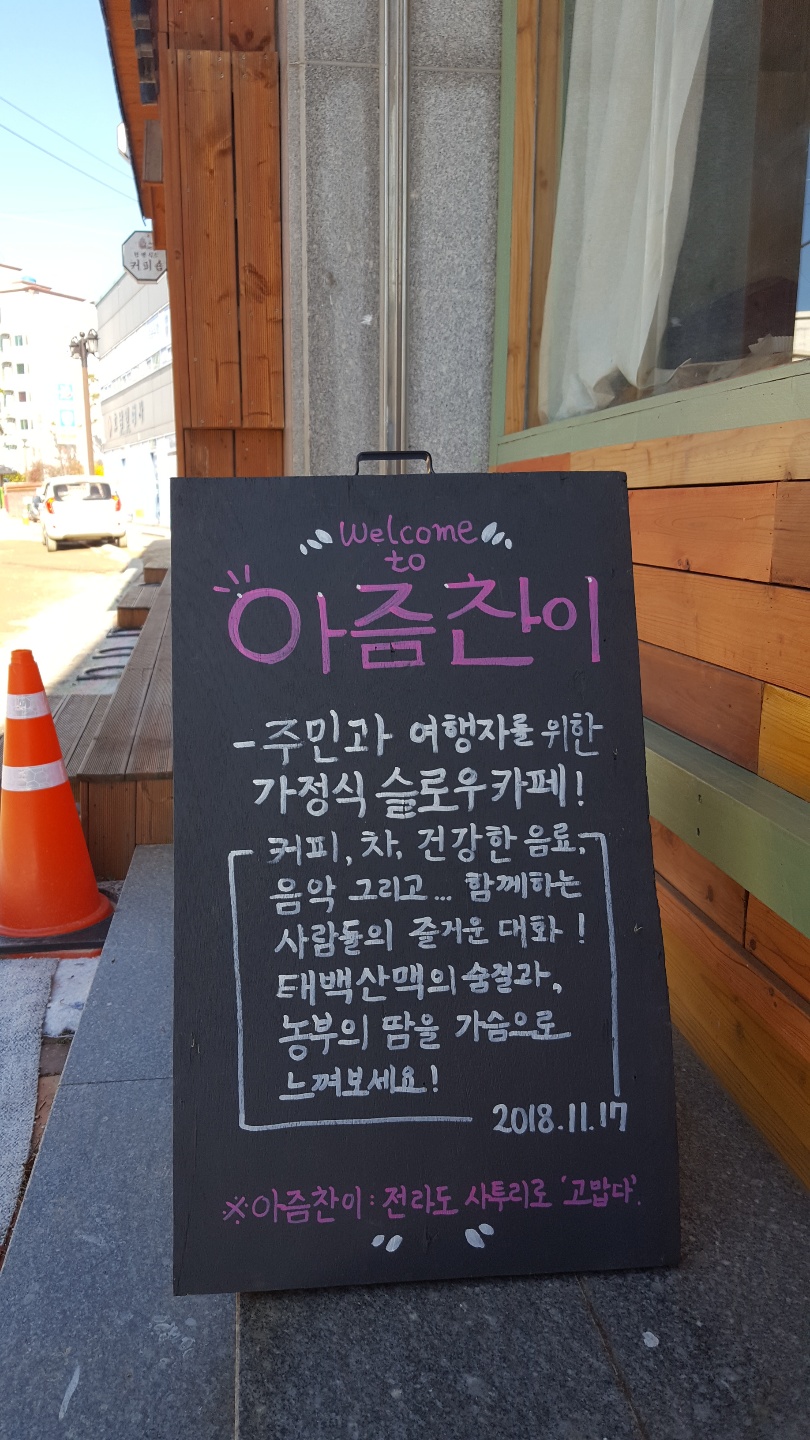 커피숍
Welcome
to
아즘찬이
- 주민과 여행자를 위한
가정식 슬로우카페!
커피, 차, 건강한 음료,
음악 그리고... 함께하는
사람들의 즐거운 대화!
태백산맥의 숨결과,
농부의 땀을 가슴으로
느껴보세요!
2018.11.17
※아즘찬이 : 전라도 사투리로 '고맙다'.